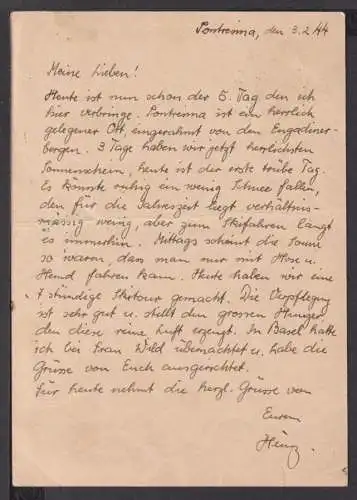 Pontresina, den 3.2.44
Meine Lieben!
Heute ist nun schon der 5. Tag den ich
hier verbringe. Pontresina ist ein herrlich
gelegener Ort, eingerahmt von den Engadiner-
bergen. 3 Tage haben wir jetzt herrlichsten
Sonnenschein, heute ist der erste trübe Tag.
Es könnte ruhig ein wenig Schnee fallen,
den für die Jahreszeit liegt verhältnis-
mässig wenig, aber zum Skifahren langt
es immerhin. Mittags scheint die Sonne
so warm, dass man nur mit Hose u.
Hemd fahren kann. Heute haben wir eine
7 stündige Skitour gemacht. Die Verpflegung
ist sehr gut u. stillt den grossen Hunger
den diese reine Luft erzeugt. In Basel hatte
ich bei Frau Wild übernachtet u. habe die
Grüsse von Euch ausgerichtet.
Für heute nehmt die herzl. Grüsse von
Eurem
Heinz.